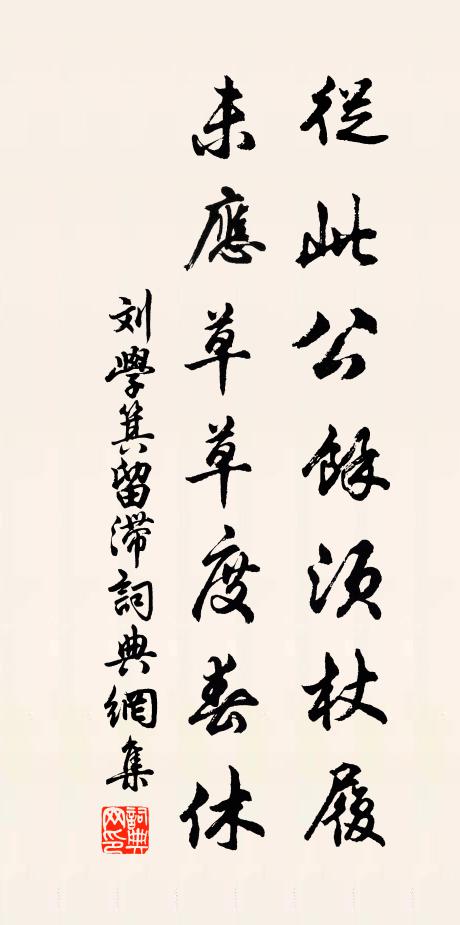 從此公餘須杖履
未應草草度春休
刘學箕留滞詞典網集
詞典網印